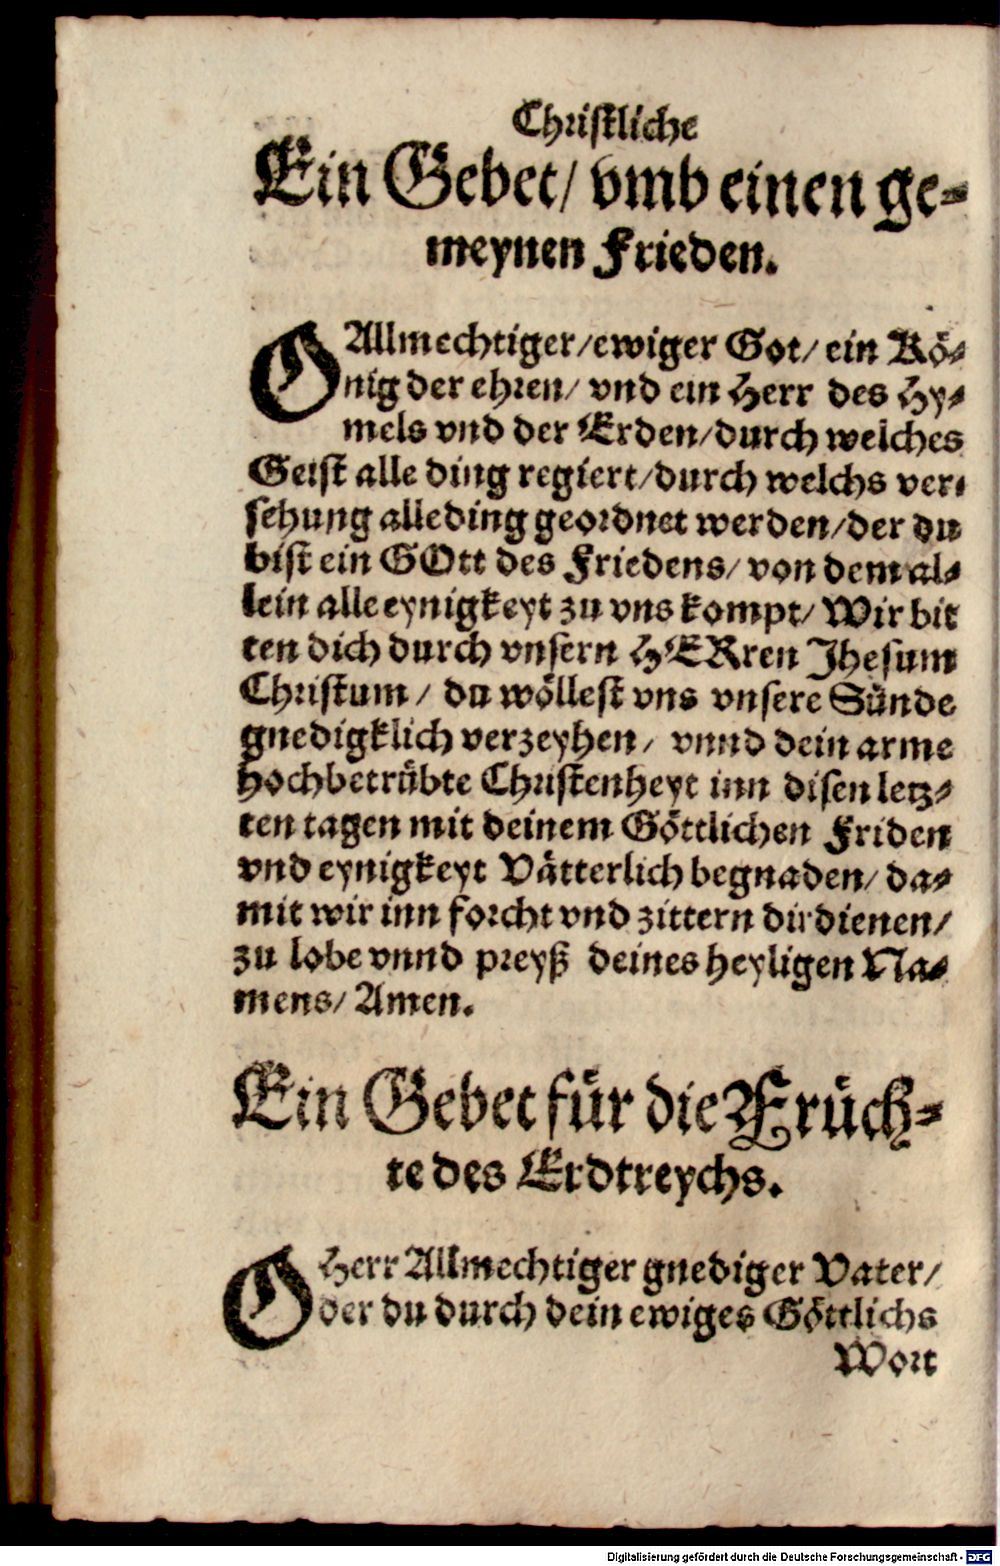 Christliche
Ein Gebet/ vmb einen ge-
meynen Frieden.
O Allmechtiger/ewiger Got/ ein Kö-
nig der ehren/ vnd ein Herr des Hy-
mels vnd der Erden/durch welches
Geist alle ding regiert/durch welchs ver-
sehung alle ding geordnet werden/der du
bist ein GOtt des Friedens/ von dem al-
lein alle eynigkeyt zu vns kompt/ Wir bit
ten dich durch vnsern HERren Jhesum
Christum/ du wöllest vns vnsere Sünde
gnedigklich verzeyhen/ vnnd dein arme
hochbetrübte Christenheyt inn disen letz-
ten tagen mit deinem Göttlichen Friden
vnd eynigkeyt Vätterlich begnaden/ da-
mit wir inn forcht vnd zittern dir dienen/
zu lobe vnnd preyß deines heyligen Na-
mens/ Amen.
Ein Gebet für die Früch-
te des Erdtreychs.
O Herr Allmechtiger gnediger Vater/
der du durch dein ewiges Göttlichs
Wort
Digitalisierung gefördert durch die Deutsche Forschungsgemeinschaft - DFG